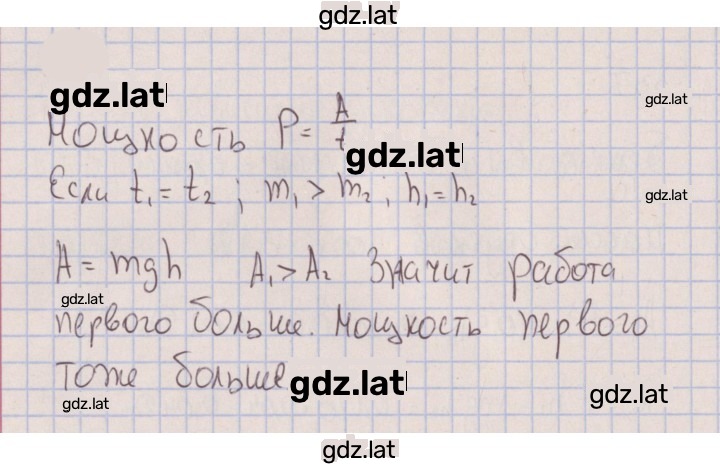 gdz.lat
gdz.lat
Мощность P = A/t
gdz.lat
gdz.lat
Если t₁ = t₂ ; m₁ > m₂ ; h₁ = h₂
gdz.lat
A = mgh A₁ > A₂ Значит работа
gdz.lat
первого больше. Мощность первого
тоже больше
gdz.lat
gdz.lat
gdz.lat
gdz.lat